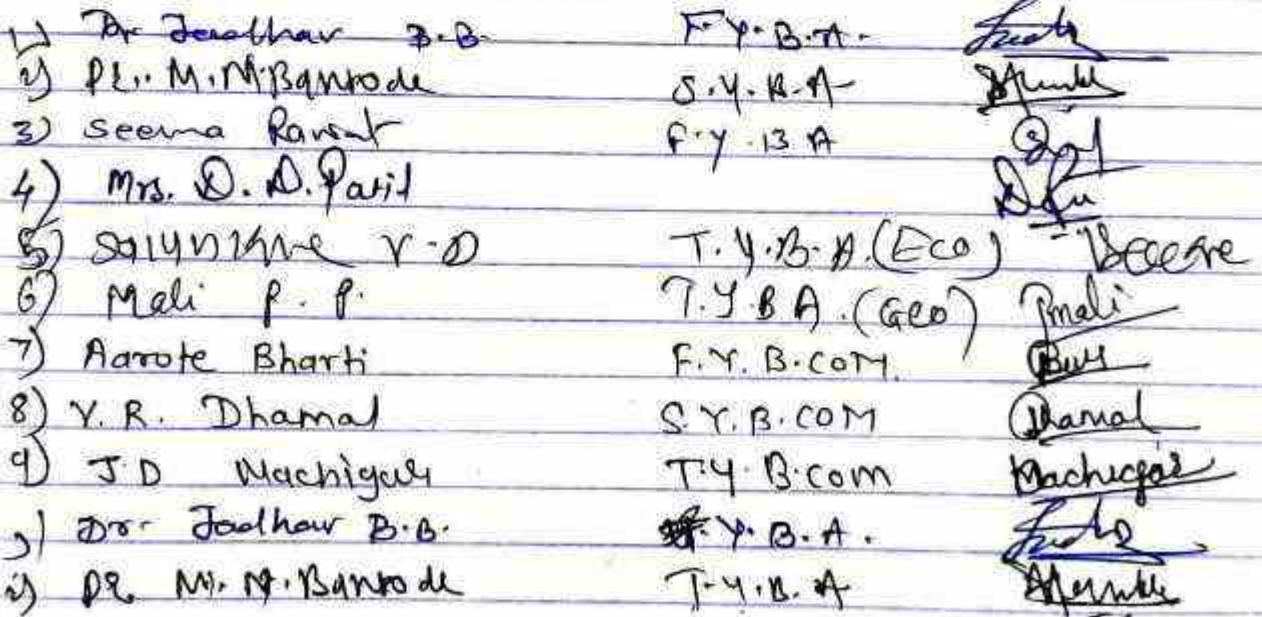 1) Dr Jadhav B.B. F.Y.B.A.
2) Pr. M.M.Bansode S.Y.B.A
3) Seema Rawat F.Y.B.A
4) Mrs. D. D. Patil
5) V.D T.Y.B.A.(Eco)
6) Mali P. P. T.Y.B A.(Geo) Pmali
7) Aarote Bharti F.Y.B.COM.
8) V.R. Dhamal S.Y.B.COM Dhamal
9) J.D Machigar T.Y B.com Machigar
Dr. Jadhav B.B. Y.B.A.
Pr M.M.Bansode T.Y.B.A